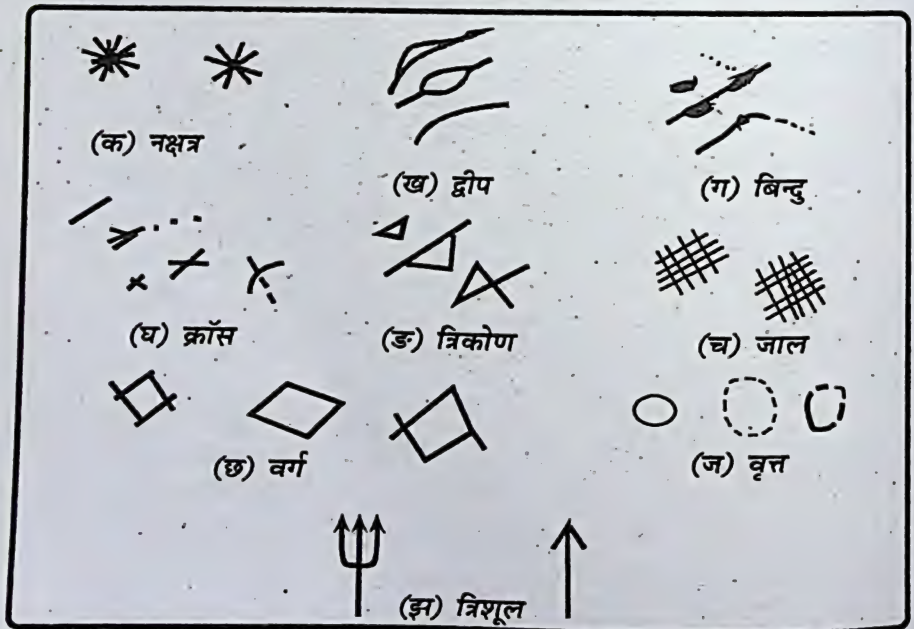 (क) नक्षत्र
(ख) द्वीप
(ग) बिन्दु
(घ) क्रॉस
(ङ) त्रिकोण
(च) जाल
(छ) वर्ग
(ज) वृत्त
(झ) त्रिशूल